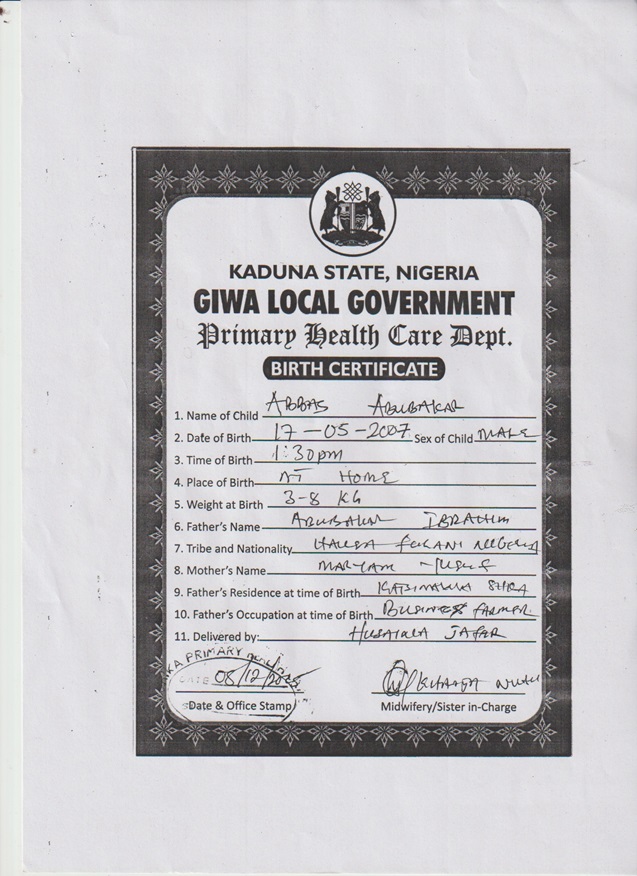 KADUNA STATE, NIGERIA
GIWA LOCAL GOVERNMENT
Primary Health Care Dept.
BIRTH CERTIFICATE
1. Name of Child ABBAS ABUBAKAR
2. Date of Birth 17-05-2007 Sex of Child MALE
3. Time of Birth 1:30pm
4. Place of Birth AT HOME
5. Weight at Birth 3-8 KG
6. Father's Name ABUBAKAR IBRAHIM
7. Tribe and Nationality HAUSA FULANI NIGERIA
8. Mother's Name MARYAM YUSUF
9. Father's Residence at time of Birth
10. Father's Occupation at time of Birth BUSINESS FARMER
11. Delivered by: JAFAR
PRIMARY
DATE 08/12/
Date & Office Stamp
Midwifery/Sister in-Charge